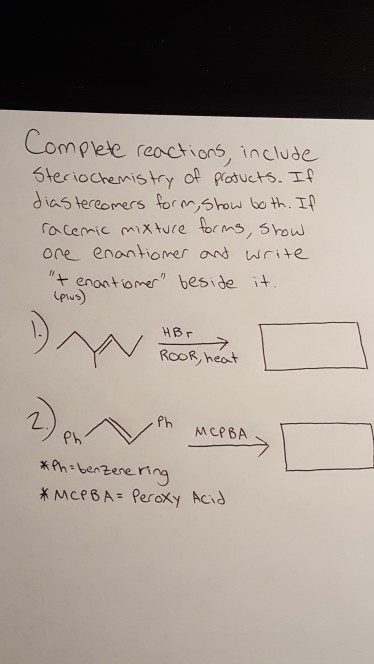 Complete reactions, include
steriochemistry of products. If
diastereomers form, show both. If
racemic mixture forms, show
one enantiomer and write
"+ enantiomer" beside it.
(plus)
1.)
HBr
ROOR, heat
2.)
Ph
Ph
MCPBA
*Ph = benzene ring
*MCPBA = Peroxy Acid